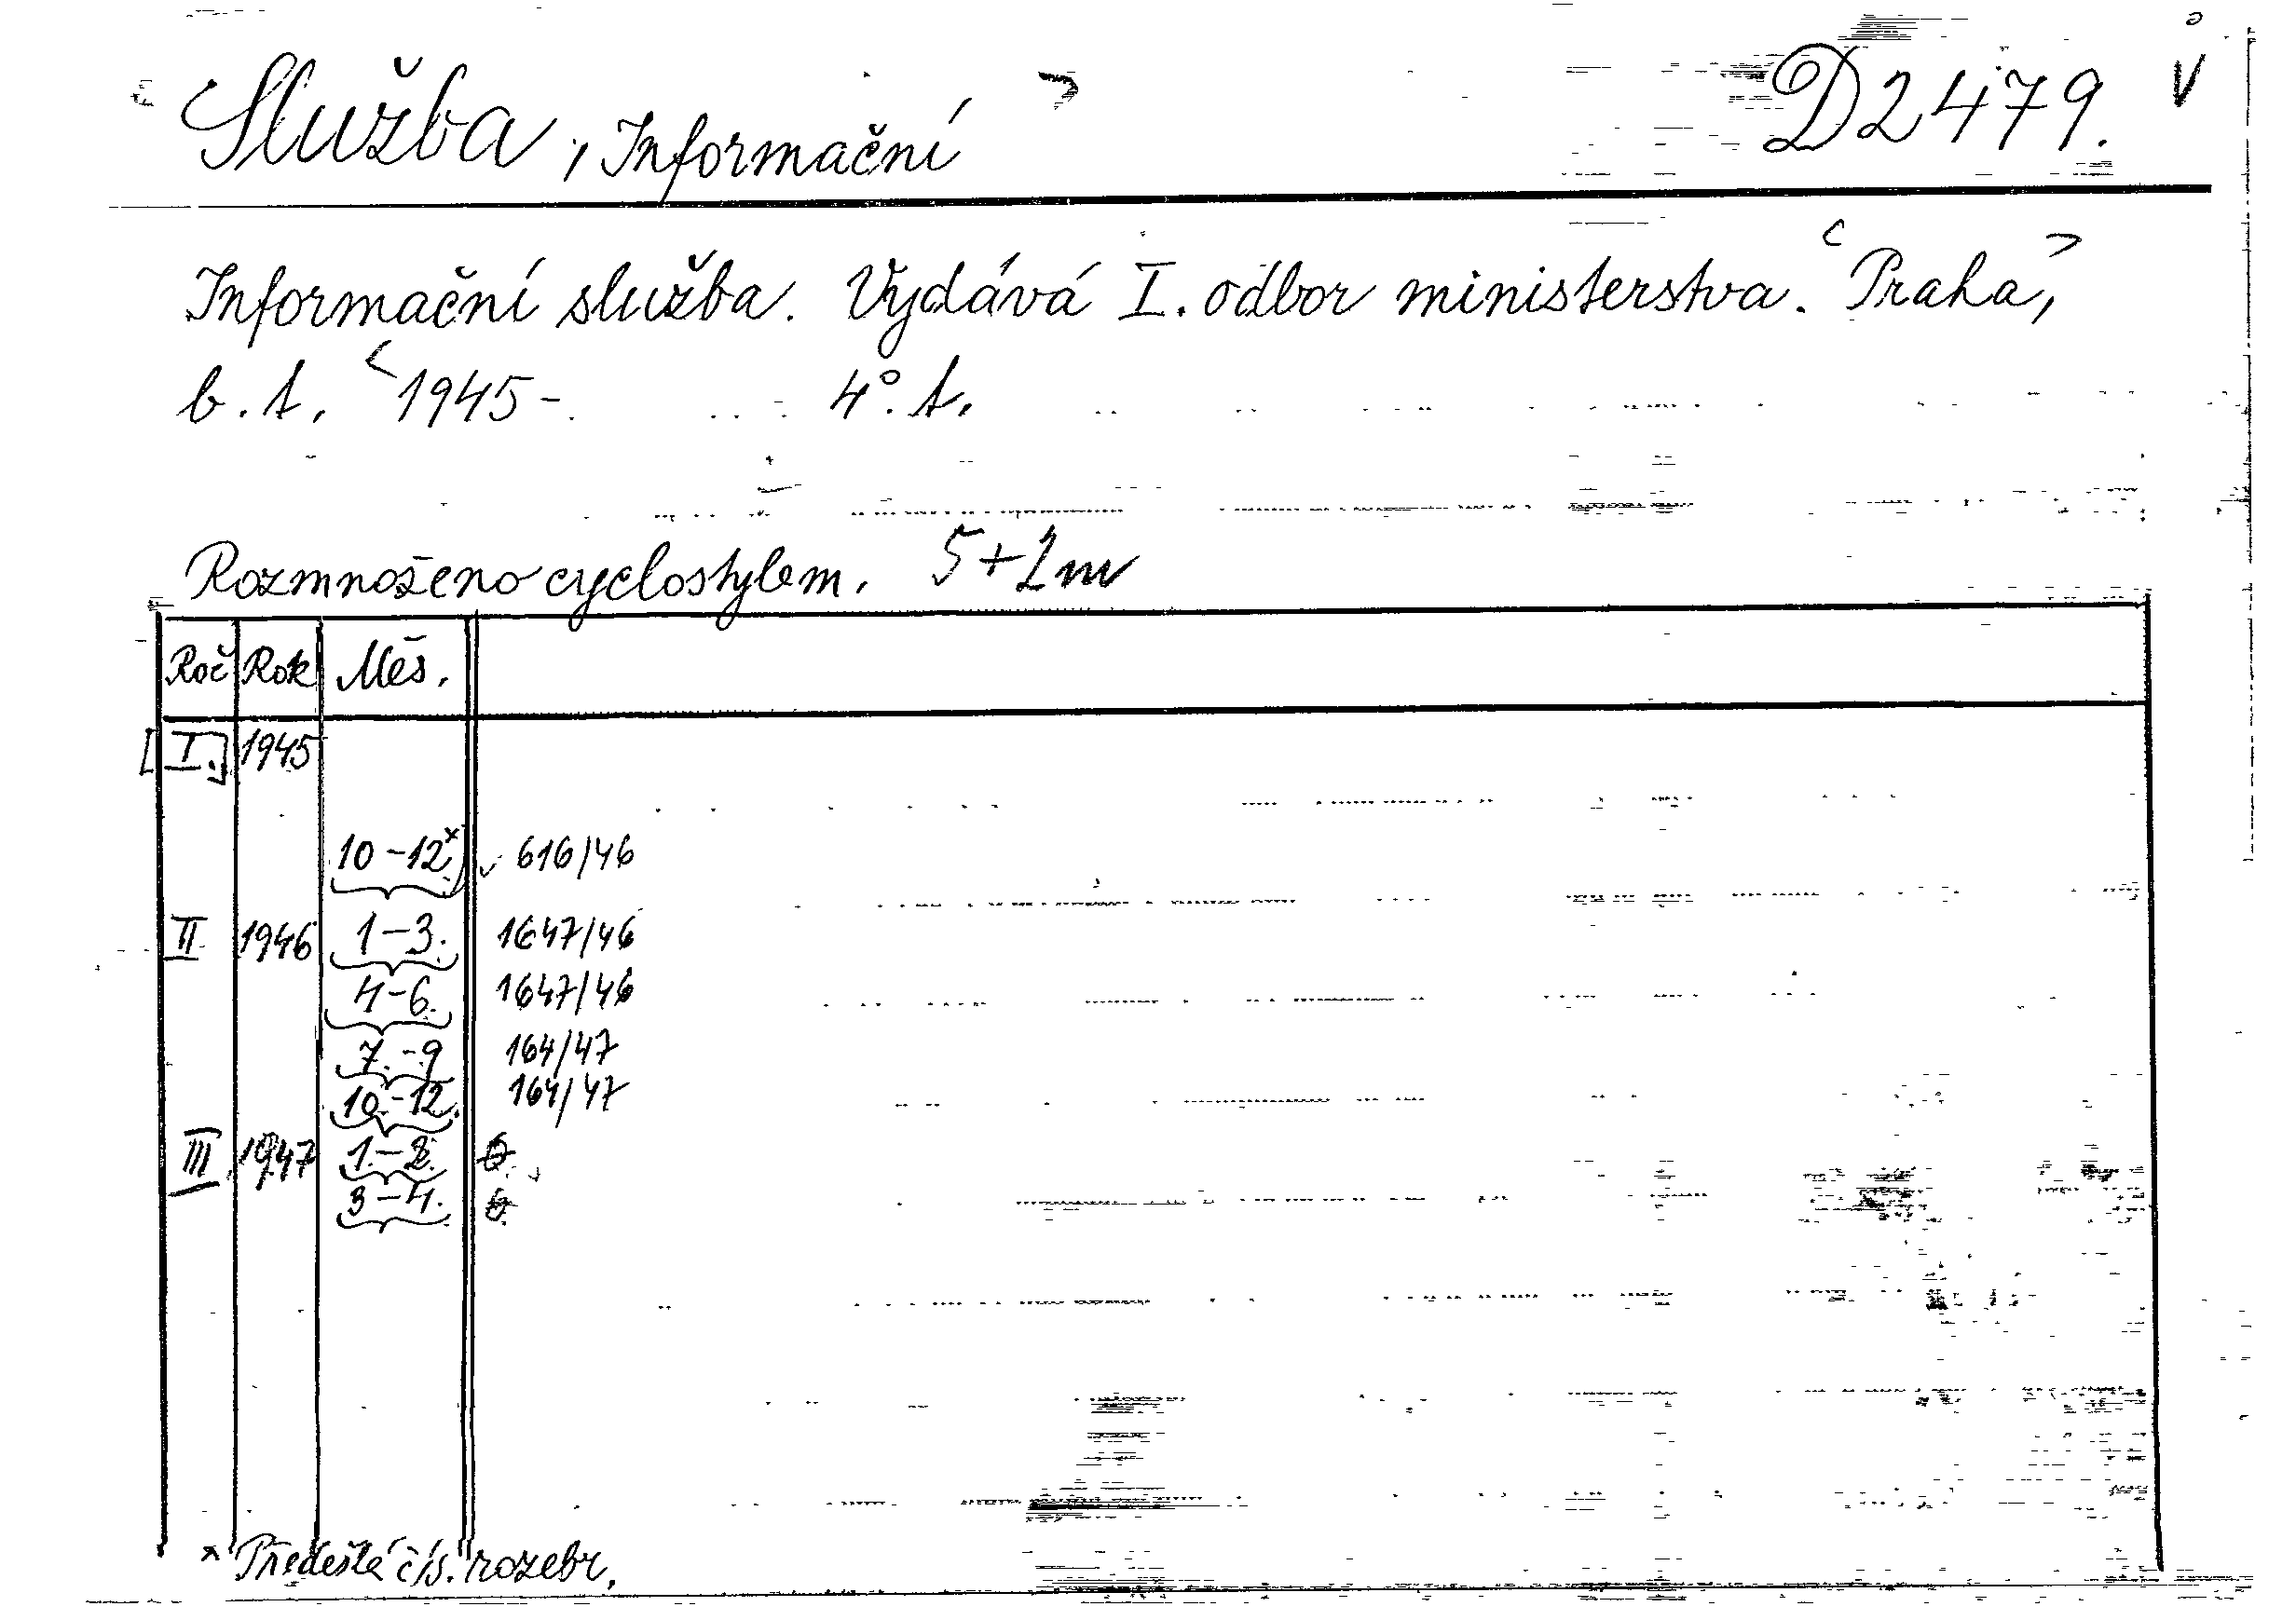 Služba, Informační D2479.
Informační služba. Vydává I. odbor ministerstva. Praha,
b.t. 1945- 4°. t.
Rozmnoženo cyclostylem. 5+2m
Roč Rok Měs.
[I.] 1945
10-12x 616/46
II 1946 1-3. 1647/46
4-6. 1647/46
7.-9 164/47
10.-12. 164/47
III 1947 1.-2.
3-4.
x Předešlé čís. rozebr.